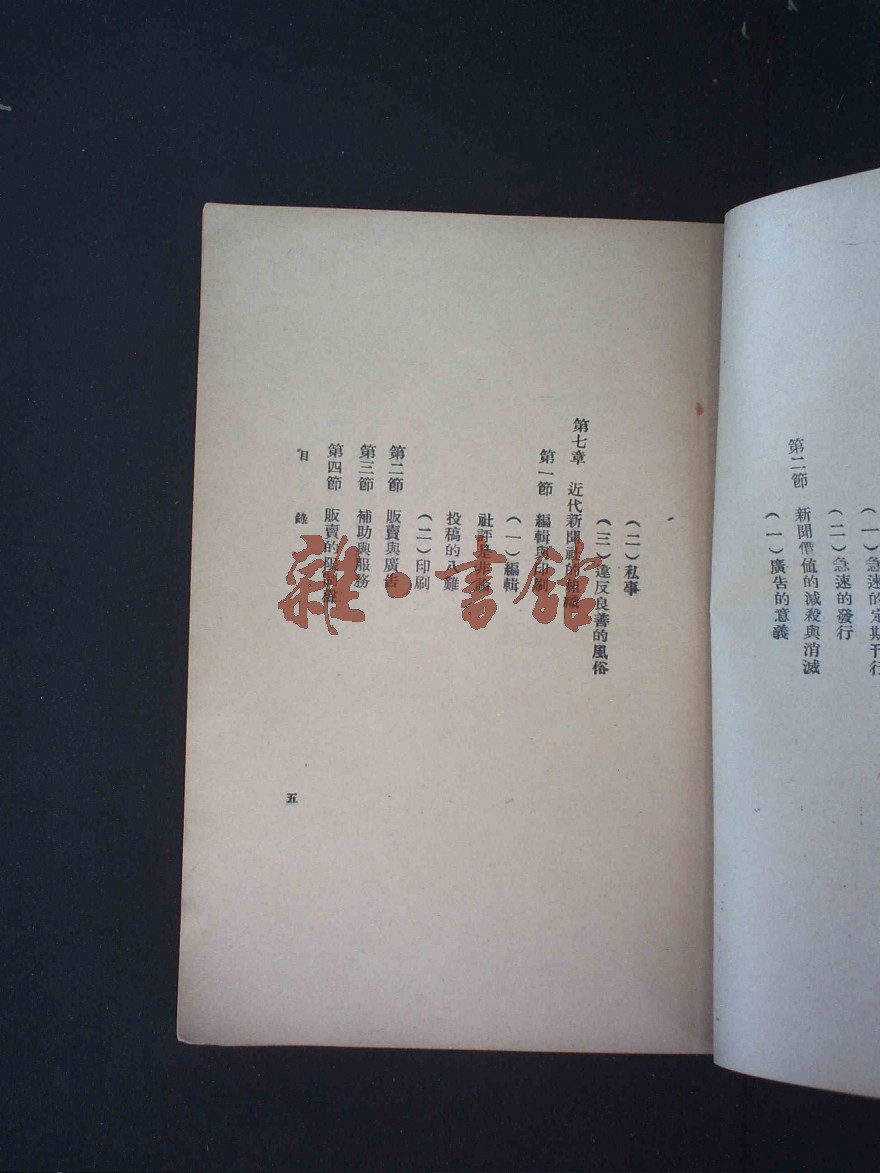 (一)急速的定期刊行
(二)急速的發行
第二節 新聞價值的減殺與消滅
(一)廣告的意義
(二)私事
(三)違反良善的風俗
第七章 近代新聞社的組織
第一節 編輯與印刷
(一)編輯
社評是非論
投稿的八難
(二)印刷
第二節 販賣與廣告
第三節 補助與服務
第四節 販賣的限制
目錄
五
雜·書館